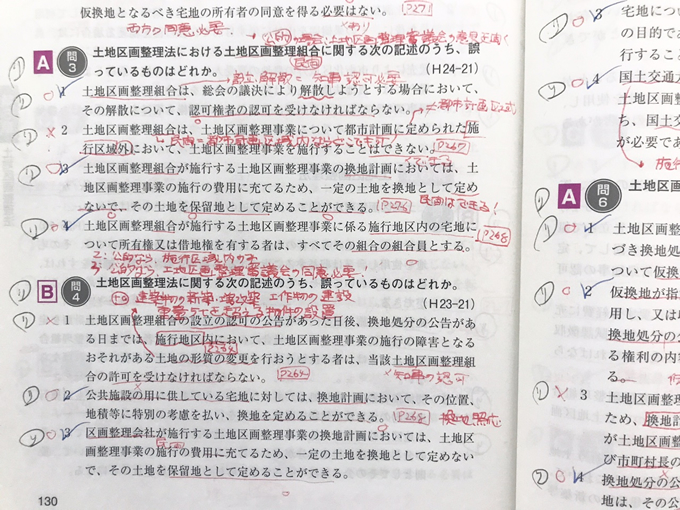 仮換地となるべき宅地の所有者の同意を得る必要はない。
P271
両方の同意必要
A 問3 土地区画整理法における土地区画整理組合に関する次の記述のうち、誤
っているものはどれか。 (H24-21)
1 土地区画整理組合は、総会の議決により解散しようとする場合において、
その解散について、認可権者の認可を受けなければならない。
2 土地区画整理組合は、土地区画整理事業について都市計画に定められた施
行区域外において、土地区画整理事業を施行することはできない。
P267
3 土地区画整理組合が施行する土地区画整理事業の換地計画においては、土
地区画整理事業の施行の費用に充てるため、一定の土地を換地として定め
ないで、その土地を保留地として定めることができる。
P276
民間はできる!
4 土地区画整理組合が施行する土地区画整理事業に係る施行地区内の宅地に
ついて所有権又は借地権を有する者は、すべてその組合の組合員とする。
P268
2:公的なら、施行区域内のみ
3:公的なら、土地区画整理審議会の同意必要!
B 問4 土地区画整理法に関する次の記述のうち、誤っているものはどれか。
(H23-21)
建築物の新築・増改築 工作物の建設
重量5tを超える物件の設置
1 土地区画整理組合の設立の認可の公告があった日後、換地処分の公告があ
る日までは、施行地区内において、土地区画整理事業の施行の障害となる
おそれがある土地の形質の変更を行おうとする者は、当該土地区画整理組
合の許可を受けなければならない。
P269
知事の認可
2 公共施設の用に供している宅地に対しては、換地計画において、その位置、
地積等に特別の考慮を払い、換地を定めることができる。
P268 換地照応
3 区画整理会社が施行する土地区画整理事業の換地計画においては、土地区
画整理事業の施行の費用に充てるため、一定の土地を換地として定めない
で、その土地を保留地として定めることができる。
民間
130
3 宅地につい
の目的であ
行すること
4 国土交通大
土地区画整
ち、国土交
が必要であ
A 問6 土地区画
1 土地区画整
づき換地処
ついて仮換
2 仮換地が指
用し、又は収
換地処分の公
る権利の内容
る。
3 土地区画整理
ため、換地計
が土地区画整
び市町村長の
4 換地処分の公
地は、その公